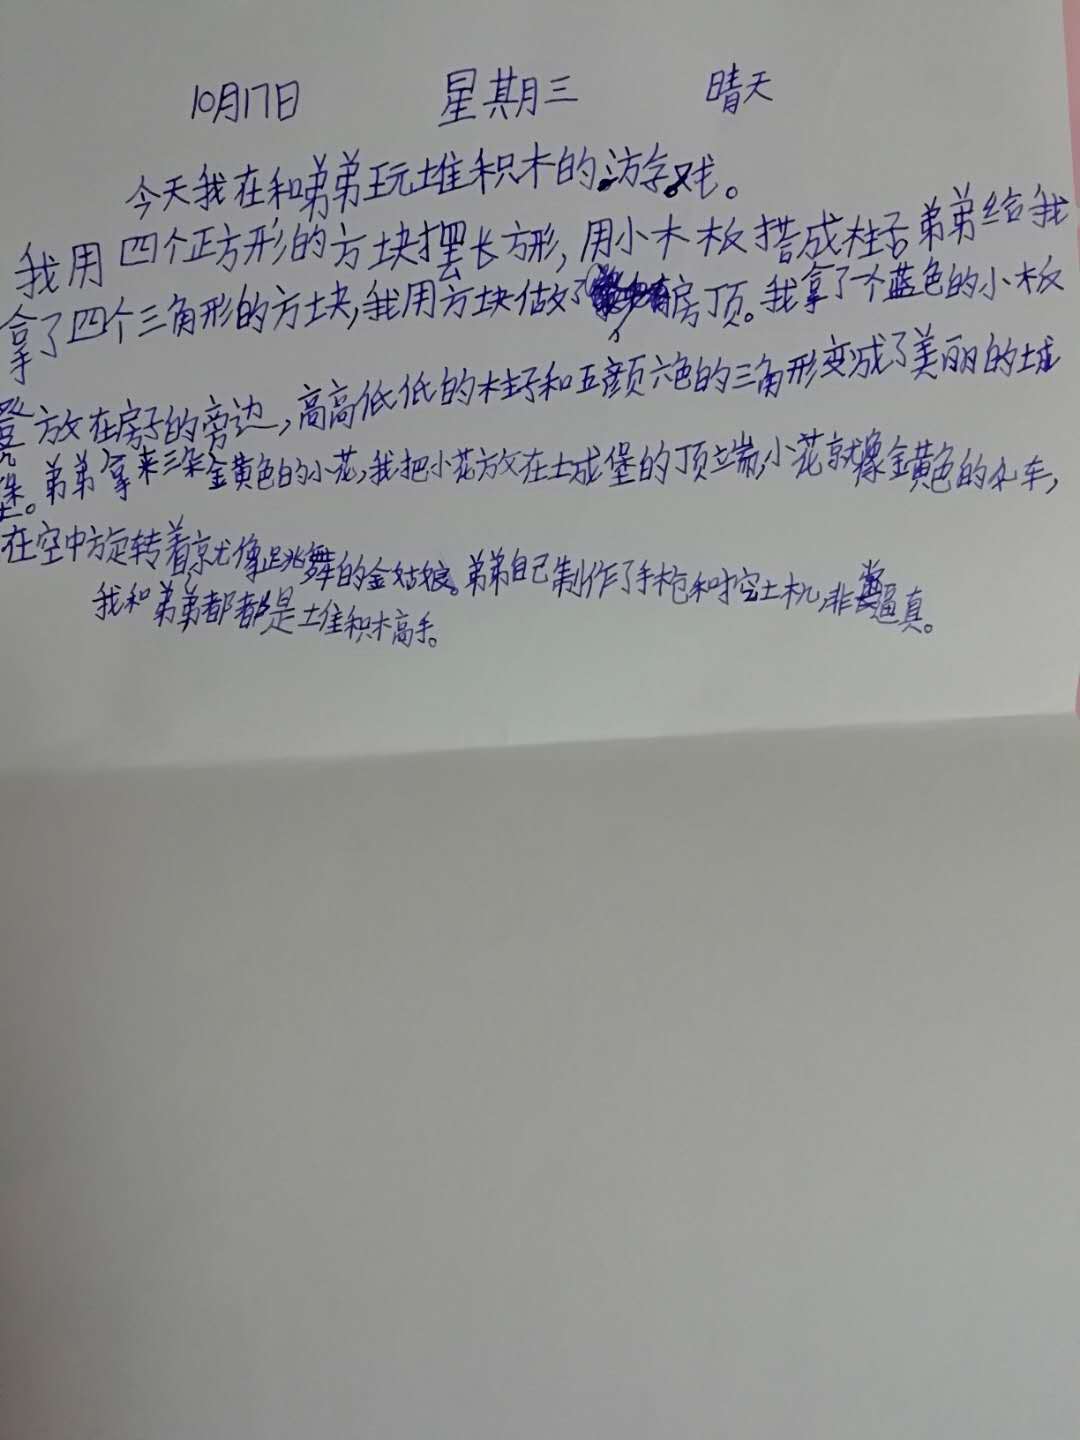 10月17日 星期三 晴天
今天我在和弟弟玩堆积木的游戏。
我用四个正方形的方块摆长方形,用小木板搭成柱子弟弟给我
拿了四个三角形的方块,我用方块做了房顶。我拿了个蓝色的小板
凳放在房子的旁边,高高低低的柱子和五颜六色的三角形变成了美丽的城
堡。弟弟拿来三朵金黄色的小花,我把小花放在城堡的顶端,小花就像金黄色的风车,
在空中旋转着就像跳舞的金姑娘。弟弟自己制作了手枪和挖土机,非常逼真。
我和弟弟都都是堆积木高手。